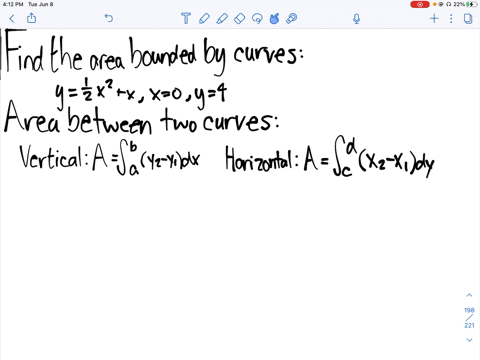 4:12 PM Tue Jun 8
22%
Find the area bounded by curves:
y = 1/2 x² + x, x=0, y=4
Area between two curves:
Vertical: A = ∫ₐᵇ (y₂-y₁)dx Horizontal: A = ∫_c^d (x₂-x₁)dy
198
/
221